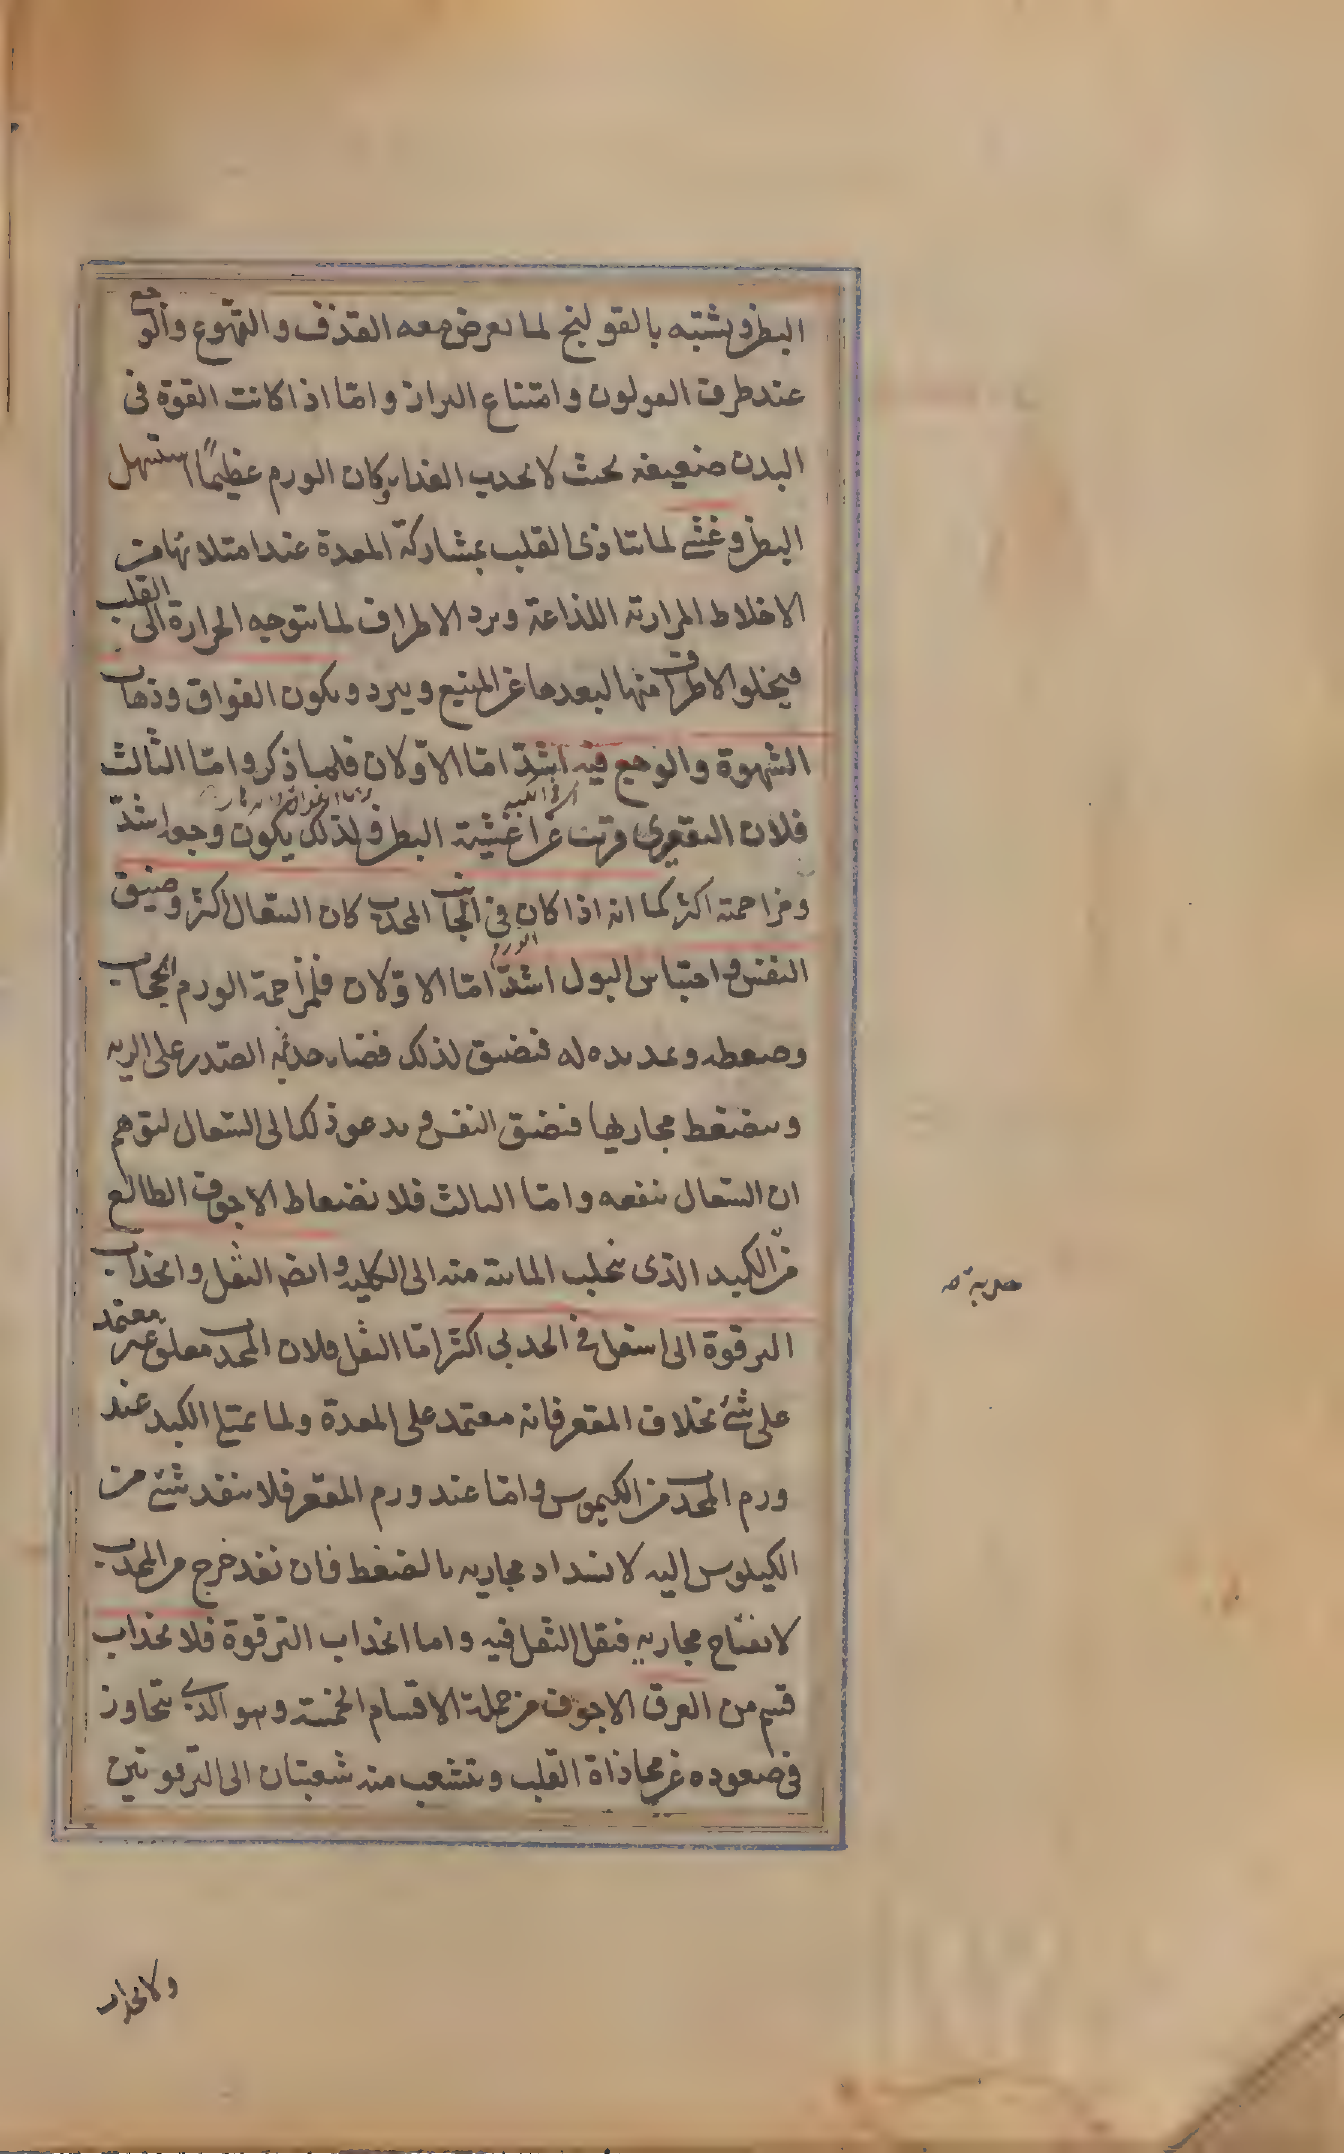 البطن ويشتبه بالقولنج لما يعرض معه القذف والتهوع والوجع
عند طرف القولون وامتناع البراز واما اذا كانت القوة فى
البدن ضعيفه بحيث لا يجذب الغذاء وكان الورم عظيمًا استسهل
البطن وغشى لما يتاذى القلب بمشاركة المعدة عند امتلائها من
الاخلاط المرارية اللذاعة وبرد الاطراف لما يتوجه الحرارة الى القلب
فيخلو الاطراف منها لبعدها عن المنبع ويبرد ويكون الفواق وذهاب
الشهوة والوجع فيه اشدّ امّا الاوّلان فلما ذكر وامّا الثالث
فلان التقعيرى قريب من اغشية البطن ولذلك يكون وجعه اشدّ
ومزاحمته اكثر كما انه اذا كان فى الجانب المحدب كان السّعال اكثر وضيق
النفس واحتباس البول اشدّ امّا الاوّلان فلمزاحمة الورم الحجاب
وضغطه وتمديده له فيضيق لذلك فضاء الصّدر على الريه
وينضغط مجاريها فيضيق النفس ويدعو ذلك الى السّعال لتوهم
ان السّعال ينفعه وامّا الثالث فلانضغاط الاجوف الطالع
من الكبد الذى يتحلب المائية منه الى الكليه وايضا الثقل وانجذاب
الترقوة الى اسفل فى الحدبى اكثر امّا الثقل فلان المحدب معلق غير معتمد
على شئ بخلاف المقعر فانه معتمد على المعدة ولما يمتلئ الكبد عند
ورم المحدب من الكيموس وامّا عند ورم المقعر فلا ينفذ شئ من
الكيلوس اليه لانسداد مجاريه بالضغط فان نفذ خرج من المحدب
لانفتاح مجاريه فيقل الثقل فيه واما انجذاب الترقوة فلانجذاب
قسم من العرق الاجوف من جملة الاقسام الخمسة وهو الذى يتجاوز
فى صعوده عن محاذاة القلب ويتشعب منه شعبتان الى الترقوتين
ولانجذاب